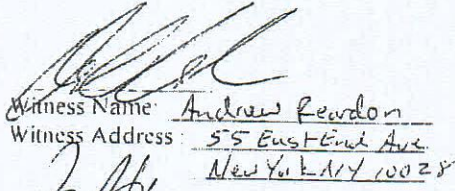 Witness Name: Andrew Reardon
Witness Address: 55 East End Ave
New York NY 10028